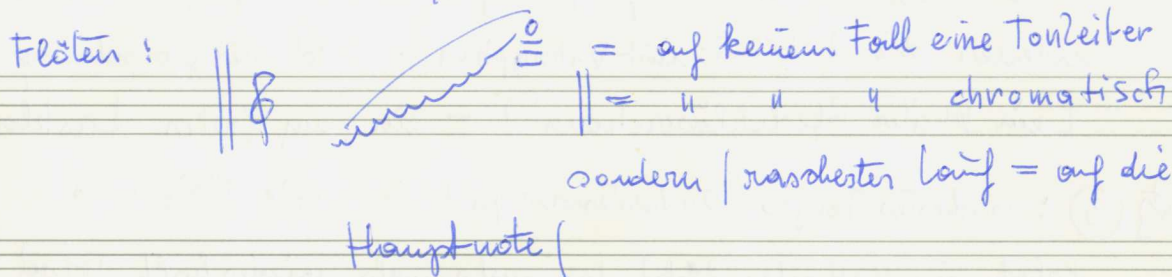 Flöten: = auf keinem Fall eine Tonleiter
= " " " chromatisch
sondern / raschester Lauf = auf die
Hauptnote /